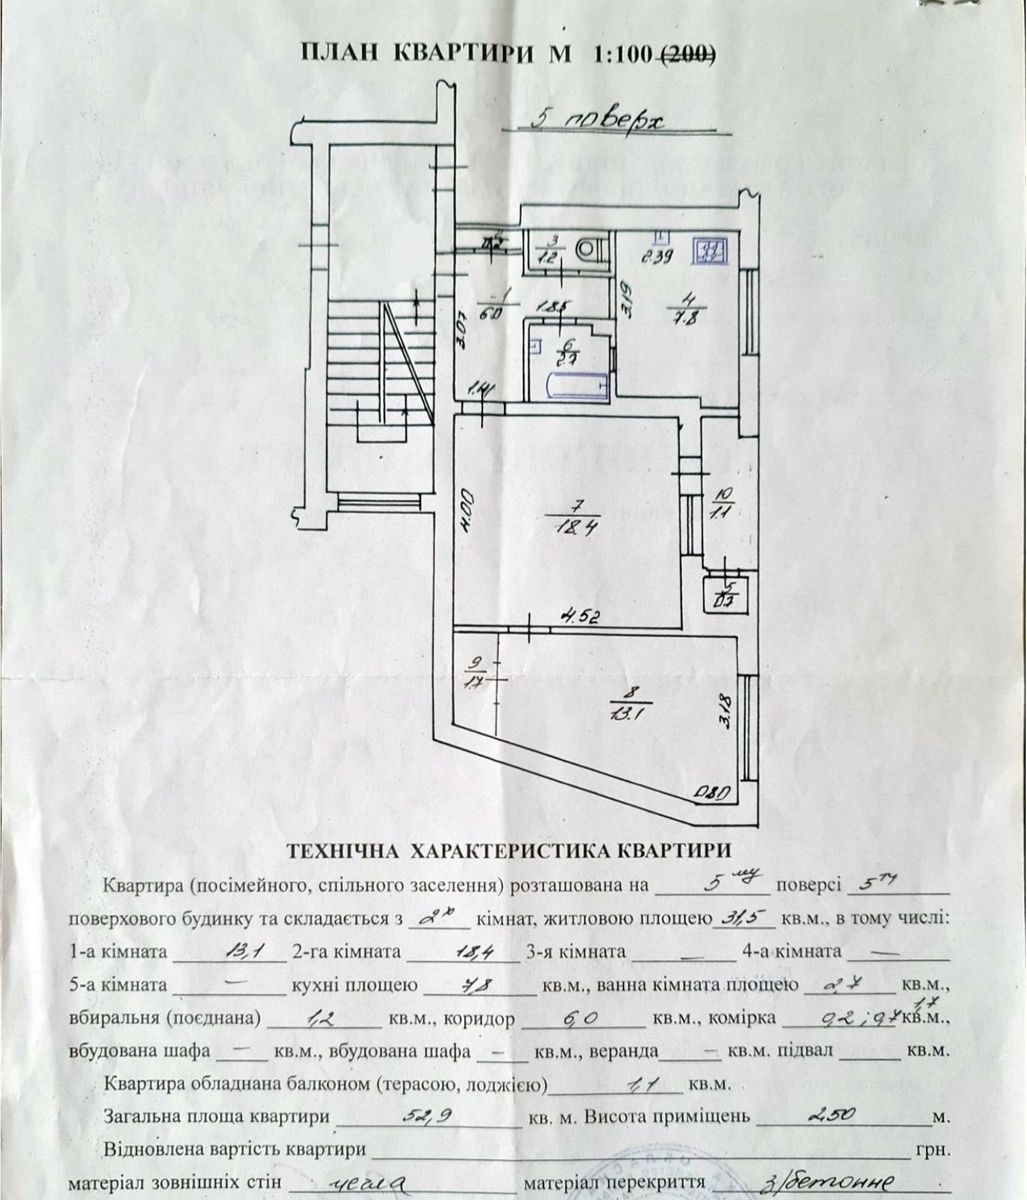 ПЛАН КВАРТИРИ М 1:100 (200)
5 поверх
2
0.2
3
1.2
2.39
1
6.0
1.85
3.19
4
7.8
3.07
6
2.7
1.41
4.00
7
18.4
10
1.1
5
0.7
4.52
9
1.7
8
13.1
3.18
0.80
ТЕХНІЧНА ХАРАКТЕРИСТИКА КВАРТИРИ
Квартира (посімейного, спільного заселення) розташована на 5 му поверсі 5 ти
поверхового будинку та складається з 2х кімнат, житловою площею 31,5 кв.м., в тому числі:
1-а кімната 13,1 2-га кімната 18,4 3-я кімната — 4-а кімната —
5-а кімната — кухні площею 7,8 кв.м., ванна кімната площею 2,7 кв.м.,
вбиральня (поєднана) 1,2 кв.м., коридор 6,0 кв.м., комірка 0,2; 0,7 1,7 кв.м.,
вбудована шафа — кв.м., вбудована шафа — кв.м., веранда — кв.м. підвал кв.м.
Квартира обладнана балконом (терасою, лоджією) 1,1 кв.м.
Загальна площа квартири 52,9 кв. м. Висота приміщень 2.50 м.
Відновлена вартість квартири грн.
матеріал зовнішніх стін цегла матеріал перекриття з/бетонне